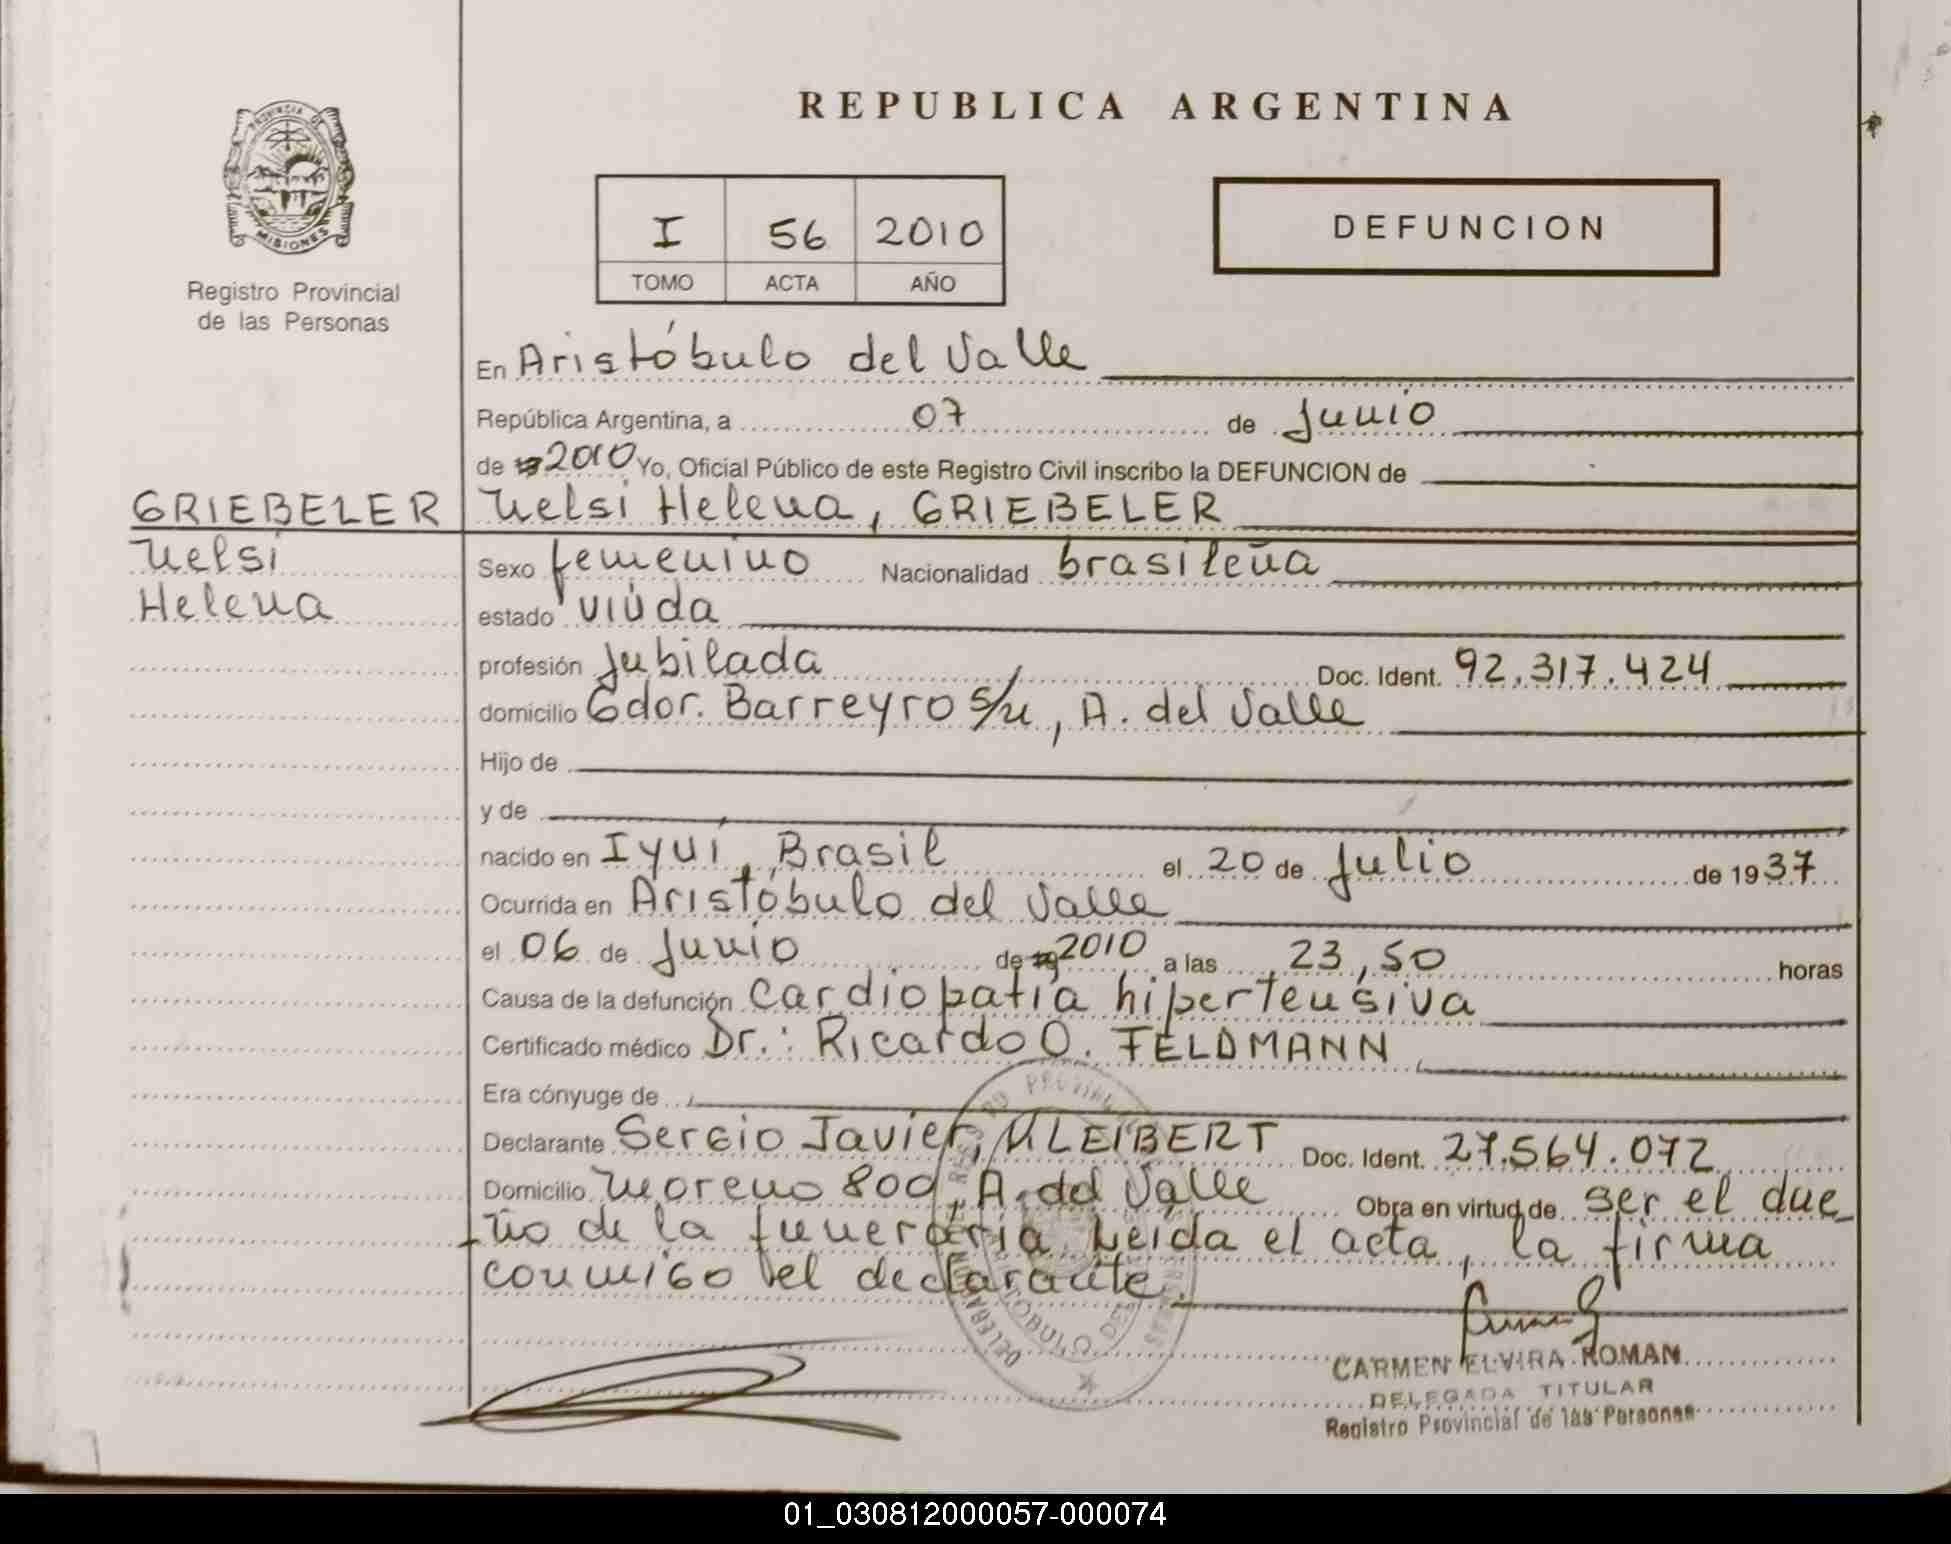 REPUBLICA ARGENTINA
PROVINCIA DE
MISIONES
Registro Provincial
de las Personas
I 56 2010
TOMO ACTA AÑO
DEFUNCION
En Aristóbulo del Valle
República Argentina, a 07 de Junio
de 19 2010 Yo, Oficial Público de este Registro Civil inscribo la DEFUNCION de
GRIEBELER
Nelsi
Helena
Nelsi Helena, GRIEBELER
Sexo femenino Nacionalidad brasileña
estado viuda
profesión Jubilada Doc. Ident. 92.317.424
domicilio Gdor. Barreyro s/n, A. del Valle
Hijo de
y de
nacido en Iyuí, Brasil el 20 de Julio de 1937
Ocurrida en Aristóbulo del Valle
el 06 de Junio de 19 2010 a las 23,50 horas
Causa de la defunción Cardiopatía hipertensiva
Certificado médico Dr.: Ricardo O. FELDMANN
Era cónyuge de
Declarante Sergio Javier, KLEIBERT Doc. Ident. 27.564.072
Domicilio Moreno 800, A. del Valle Obra en virtud de ser el due_
ño de la funeraria. Leída el acta, la firma
conmigo el declarante.
CARMEN ELVIRA ROMAN
DELEGADA TITULAR
Registro Provincial de las Personas
01_030812000057-000074